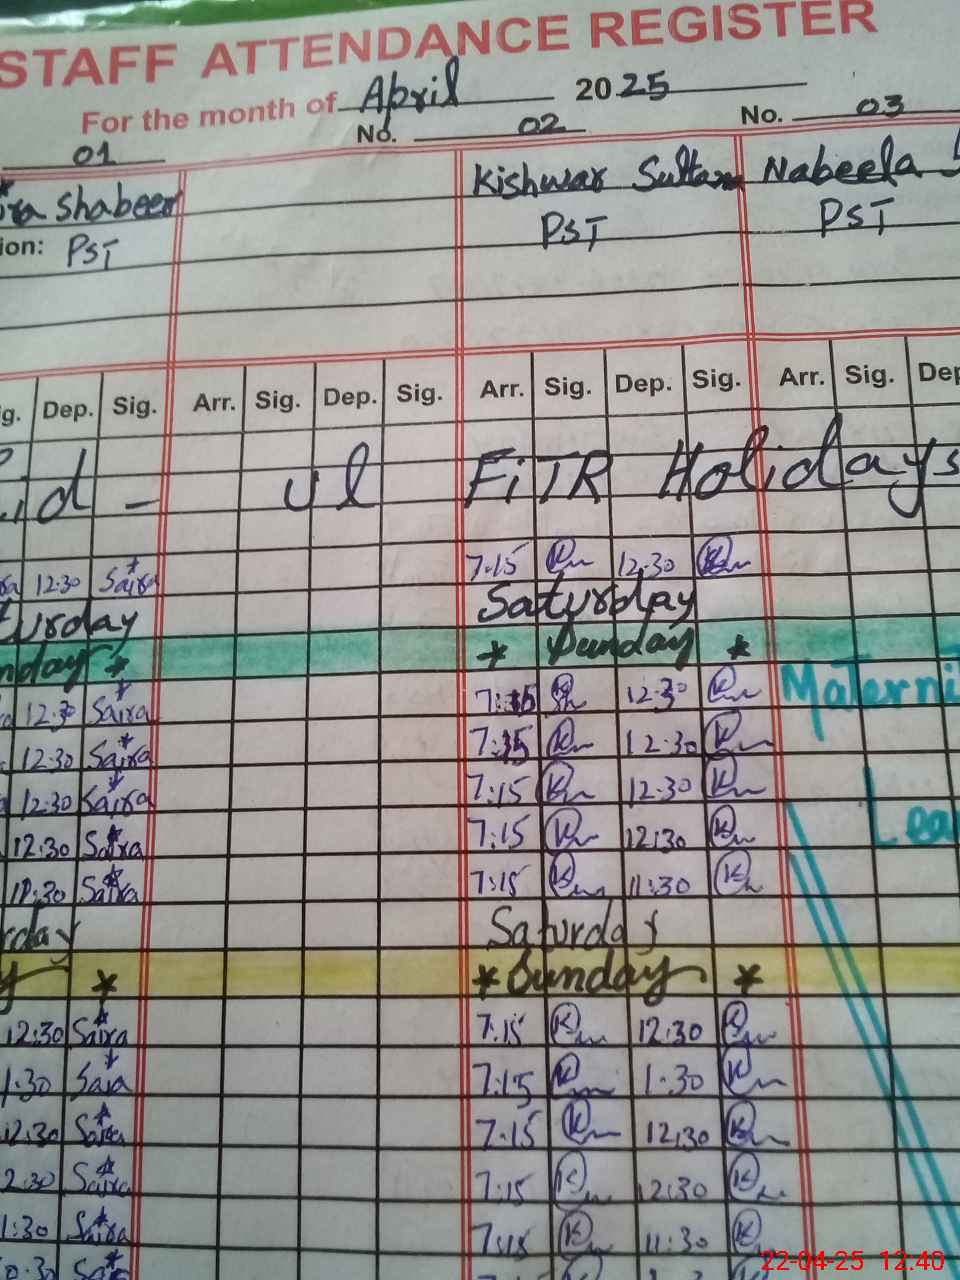 STAFF ATTENDANCE REGISTER
For the month of April 2025
01 No. 02 No. 03
ira Shabeer Kishwar Sultan Nabeela
ion: PST PST PST
ig. Dep. Sig. Arr. Sig. Dep. Sig. Arr. Sig. Dep. Sig. Arr. Sig. Dep
id - ul FiTR Holidays
12:30 Saira 7:15 12:30
turday Saturday
nday * * Sunday *
12:30 Saira 7:15 12:30 Materni
12:30 Saira 7:15 12:30
12:30 Saira 7:15 12:30
12:30 Saira 7:15 12:30 Lea
11:30 Saira 7:15 11:30
rday Saturday
y * * Sunday *
12:30 Saira 7:15 12:30
1:30 Saia 7:15 1:30
12:30 Saira 7:15 12:30
2:30 Saira 7:15 12:30
1:30 Saira 7:15 11:30
0:30 Sa
22-04-25 12:40